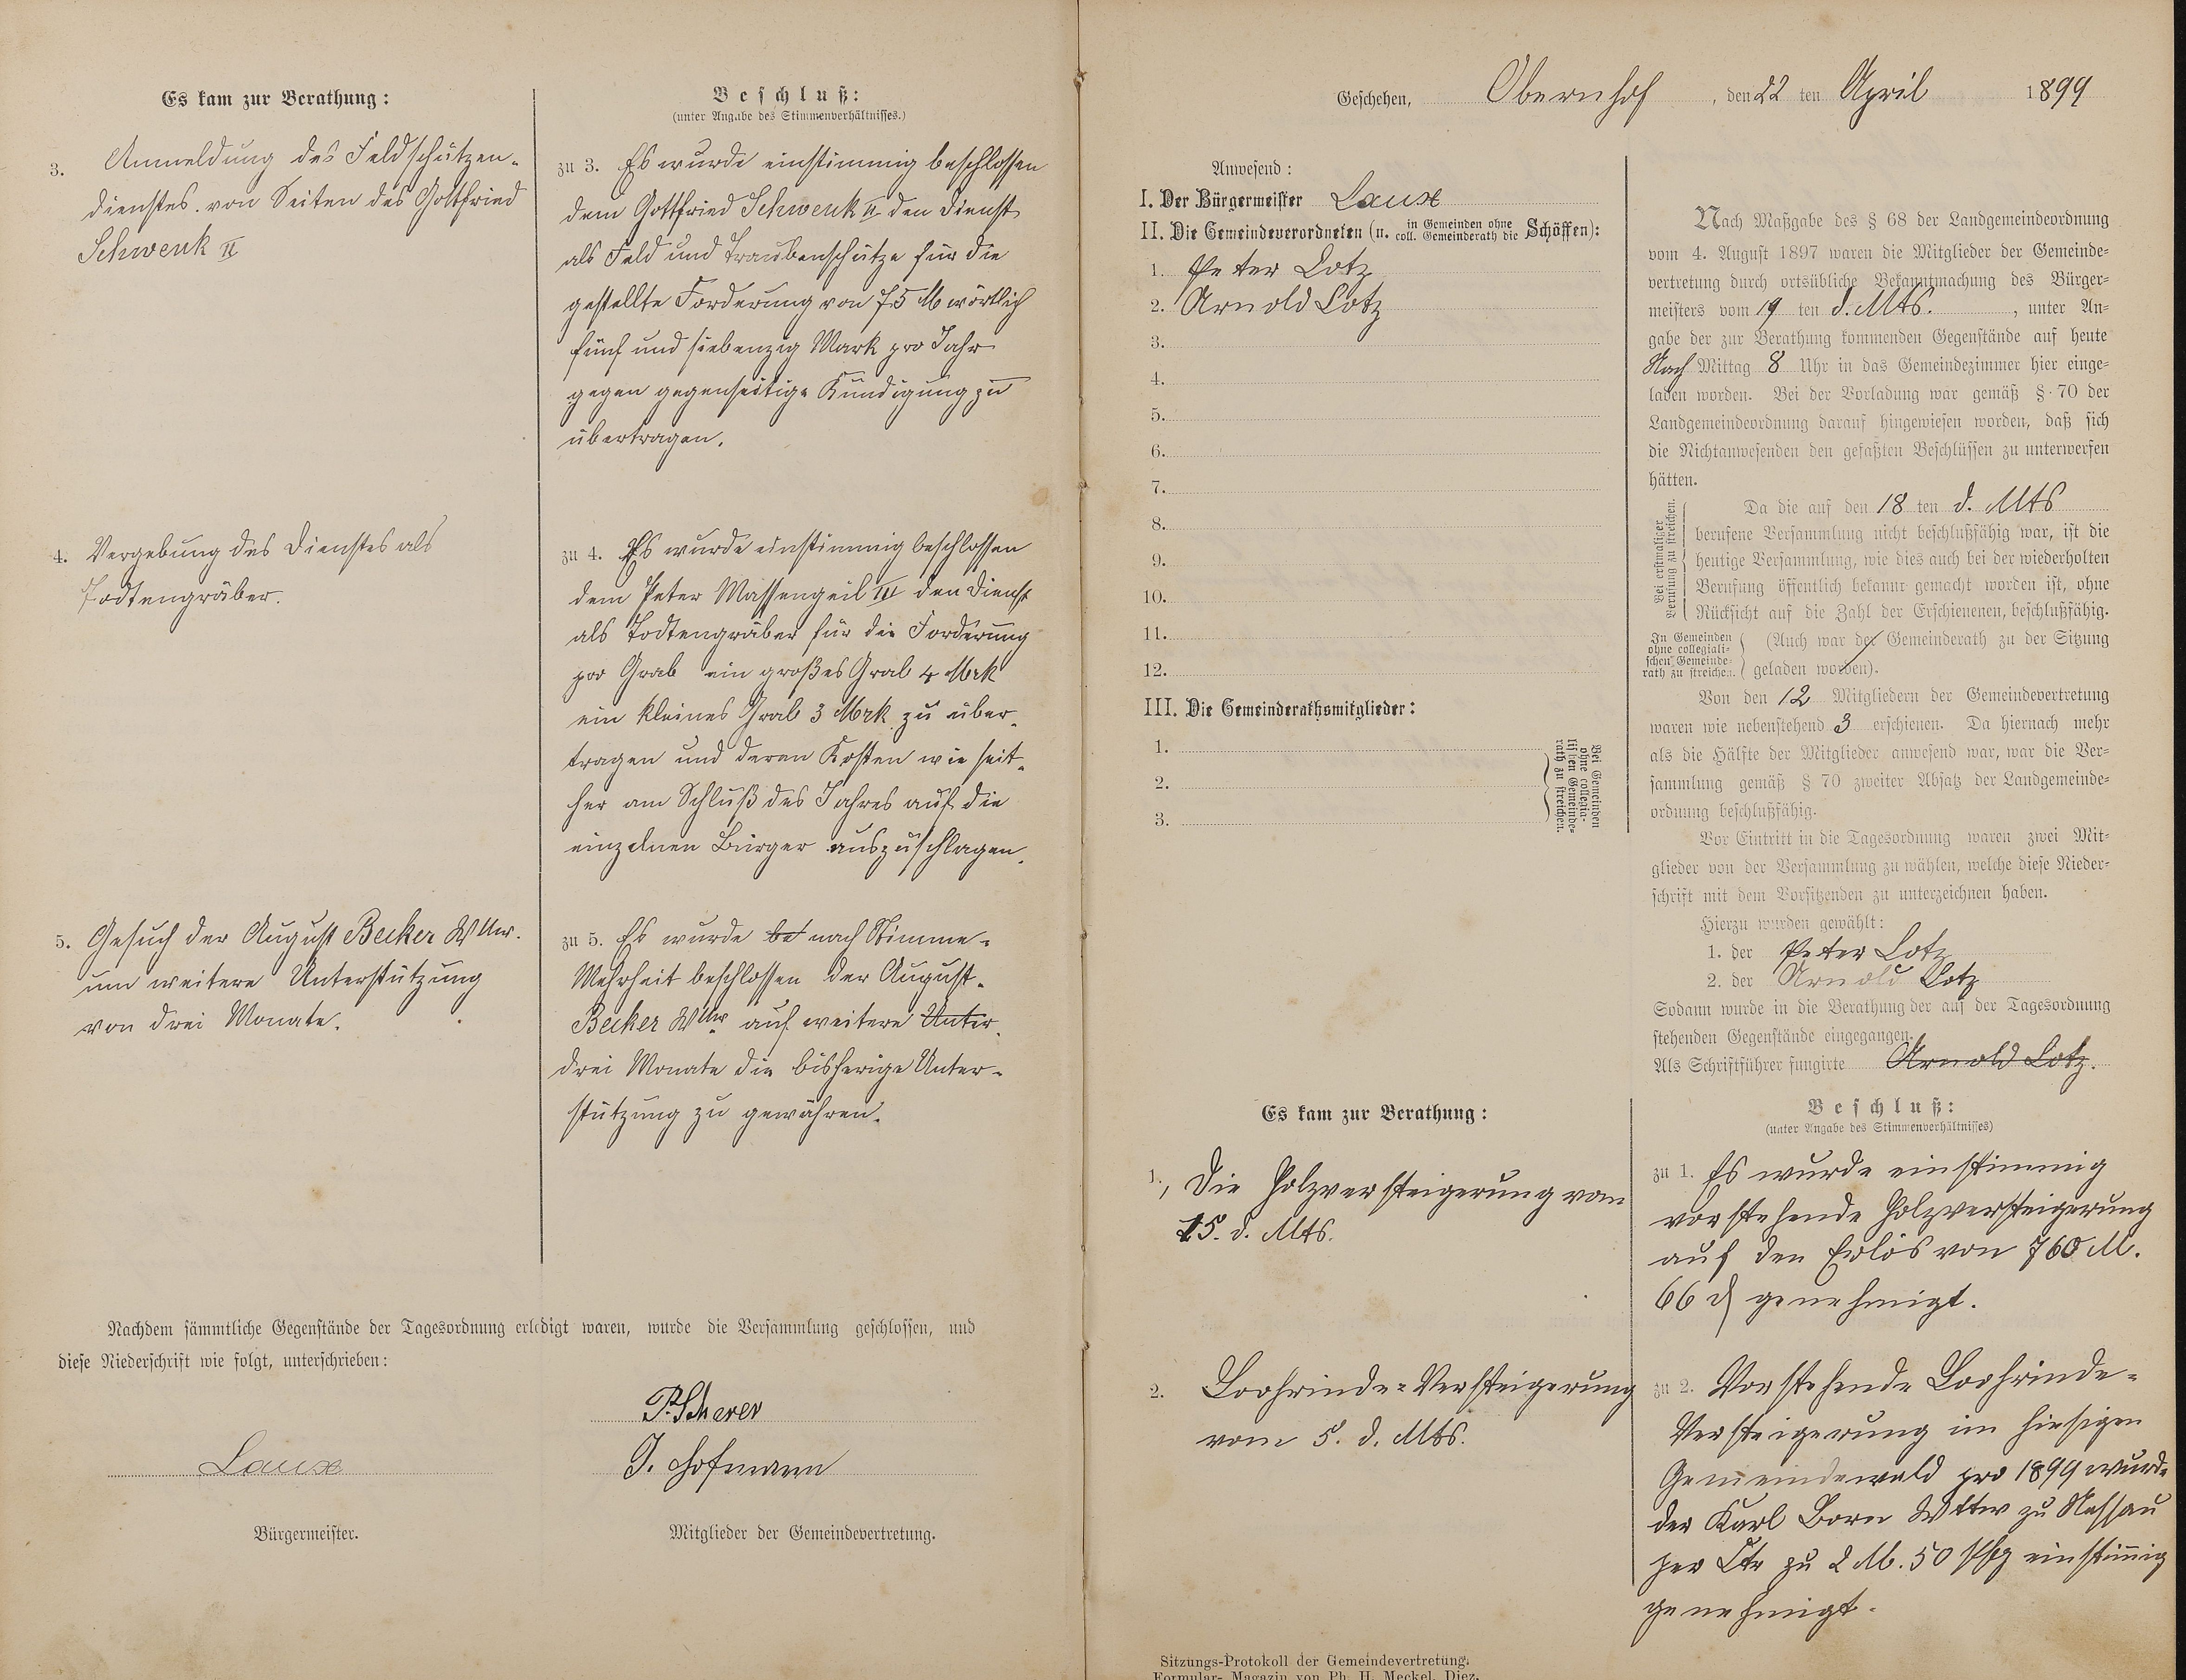 Es kam zur Berathung:
3. Anmeldung des Feldschützen-
dienstes von Seiten des Gottfried
Schwenk II
4. Vergebung des Dienstes als
Todtengräber.
5. Gesuch der August Becker Wttw.
um weitere Unterstützung
von drei Monate.
Beschluß:
(unter Angabe des Stimmenverhältnisses.)
zu 3. Es wurde einstimmig beschlossen
dem Gottfried Schwenk II den Dienst
als Feld und Traubenschütze für die
gestellte Forderung von 75 M wörtlich
fünf und siebenzig Mark pro Jahr
gegen gegenseitige Kündigung zu
übertragen.
zu 4. Es wurde einstimmig beschlossen
dem Peter Massengeil III den Dienst
als Todtengräber für die Forderung
pro Grab ein großes Grab 4 Mrk
ein kleines Grab 3 Mrk zu über-
tragen und deren Kosten wie seit-
her am Schluß des Jahres auf die
einzelnen Bürger auszuschlagen.
zu 5. Es wurde be nach Stimme-
Mehrheit beschlossen der August-
Becker Wttw auf weitere Unter-
drei Monate die bisherige Unter-
stützung zu gewähren.
Nachdem sämmtliche Gegenstände der Tagesordnung erledigt waren, wurde die Versammlung geschlossen, und
diese Niederschrift wie folgt, unterschrieben:
P. Scherer
Laux
J. Hofmann
Bürgermeister.
Mitglieder der Gemeindevertretung.
Geschehen, Obernhof, den 22 ten April 1899
Anwesend:
I. Der Bürgermeister Laux
II. Die Gemeindeverordneten (u. in Gemeinden ohne coll. Gemeinderath die Schöffen):
1. Peter Lotz
2. Arnold Lotz
3.
4.
5.
6.
7.
8.
9.
10.
11.
12.
III. Die Gemeinderathsmitglieder:
1.
2.
3.
Bei Gemeinden
ohne collegia-
lischen Gemeinde-
rath zu streichen.
Nach Maßgabe des § 68 der Landgemeindeordnung
vom 4. August 1897 waren die Mitglieder der Gemeinde-
vertretung durch ortsübliche Bekanntmachung des Bürger-
meisters vom 19 ten d. Mts. , unter An-
gabe der zur Berathung kommenden Gegenstände auf heute
Nach Mittag 8 Uhr in das Gemeindezimmer hier einge-
laden worden. Bei der Vorladung war gemäß § 70 der
Landgemeindeordnung darauf hingewiesen worden, daß sich
die Nichtanwesenden den gefaßten Beschlüssen zu unterwerfen
hätten.
Bei erstmaliger
Berufung zu streichen.
Da die auf den 18 ten d. Mts
berufene Versammlung nicht beschlußfähig war, ist die
heutige Versammlung, wie dies auch bei der wiederholten
Berufung öffentlich bekannt gemacht worden ist, ohne
Rücksicht auf die Zahl der Erschienenen, beschlußfähig.
In Gemeinden
ohne collegiali-
schen Gemeinde-
rath zu streichen.
(Auch war der Gemeinderath zu der Sitzung
geladen worden).
Von den 12 Mitgliedern der Gemeindevertretung
waren wie nebenstehend 3 erschienen. Da hiernach mehr
als die Hälfte der Mitglieder anwesend war, war die Ver-
sammlung gemäß § 70 zweiter Absatz der Landgemeinde-
ordnung beschlußfähig.
Vor Eintritt in die Tagesordnung waren zwei Mit-
glieder von der Versammlung zu wählen, welche diese Nieder-
schrift mit dem Vorsitzenden zu unterzeichnen haben.
Hierzu wurden gewählt:
1. der Peter Lotz
2. der Arnold Lotz
Sodann wurde in die Berathung der auf der Tagesordnung
stehenden Gegenstände eingegangen.
Als Schriftführer fungirte Arnold Lotz.
Es kam zur Berathung:
1., Die Holzversteigerung vom
15. d. Mts.
2. Loohrinde-Versteigerung
vom 5. d. Mts.
Beschluß:
(unter Angabe des Stimmenverhältnisses)
zu 1. Es wurde einstimmig
vorstehende Holzversteigerung
auf den Erlös von 760 M.
66 ₰ genehmigt.
zu 2. Vorstehende Loohrinde-
Versteigerung im hiesigen
Gemeindewald pro 1899 wurde
der Karl Born Wttw zu Nassau
per Ctr zu 2 M. 50 Pfg einstimig
genehmigt.
Sitzungs-Protokoll der Gemeindevertretung.
Formular-Magazin von Ph. H. Meckel, Diez.